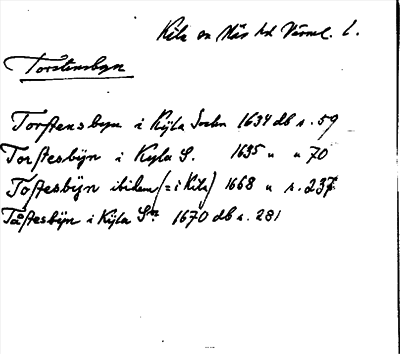 Kila sn Näs hd Värml. l.
Torstensbyn
Torstensbyn i Kijla Sochn 1634 db s. 59
Torstesbÿn i Kyla S. 1635 " " 70
Tostesbÿn ibidem (= i Kila) 1668 " s. 237
Tåstesbÿn i Kijla Sn 1670 db s. 281